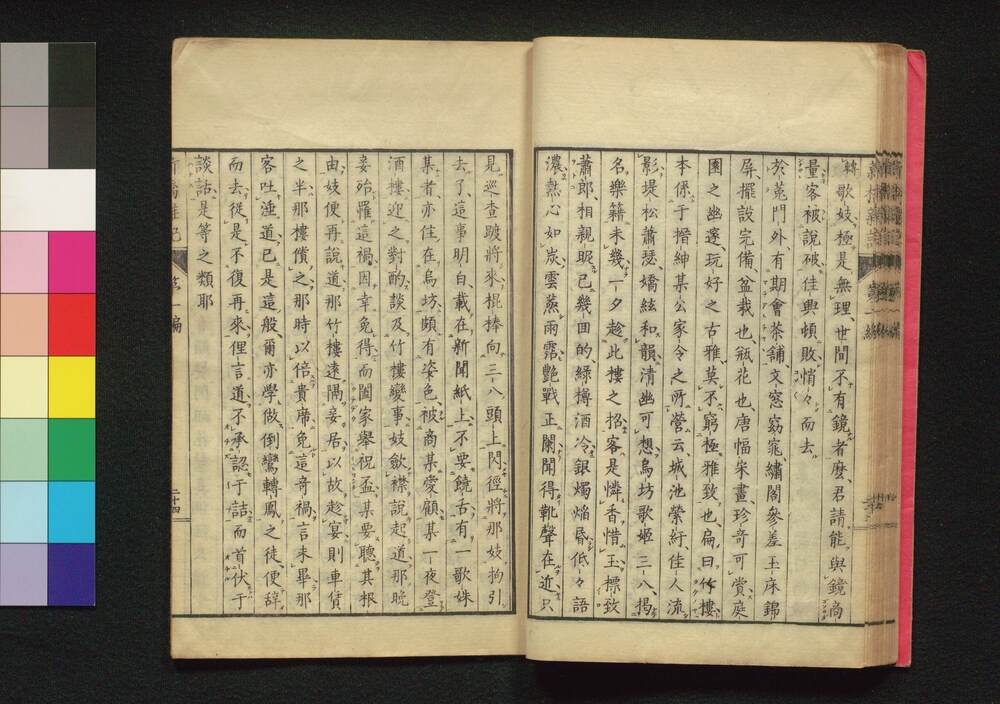 歌妓、極是無理、世間不有鏡者麼、君請能與鏡商
量、客被說破、佳興頓敗、悄々而去、
於菟門外、有期會茶舖、文窓窈窕、繡閣參差、玉床錦
屏、擺設完備、盆栽也、瓶花也、唐幅宋畫、珍奇可賞、庭
園之幽邃、玩好之古雅、莫不窮極雅致也、扁曰竹樓、
李係于搢紳某公家令之所營云、城池縈紆、佳人流
影、堤松蕭瑟、嬌絃和韻、清幽可想、烏坊歌姬三八、揭
名樂籍未幾、一夕趁此樓之招、客是憐香惜玉、標致
蕭郎、相親眤已幾囬的、綠樽酒冷、銀燭焔昏、低々語
濃、熱心如炭、雲蒸雨霑、艷戰正闌、聞得靴聲在近、只
見巡查踱將來、棍捧向三八頭上閃、徑將那妓拘引
去了、這事明白載在新聞紙上、不要饒舌、有一歌姝
某者、亦住在烏坊、頗有姿色、被商某愛顧、某一夜登
酒樓迎之、對酌談及竹樓變事、妓斂襟說起道、那晚
妾殆罹這禍、因幸免得、而闔家舉祝盃、某要聽其根
由、妓便再說道、那竹樓遠隔妾居、以故趁宴則車賃
之半、那樓償之、那時以倍貴席、免這奇禍、言未畢、那
客吐涶道、已是這般、爾亦學做倒鸞轉鳳之徒、便辭
而去、從是不復再來、俚言道、不承認于詰、而首伏于
談話、是等之類耶
第一編
二十四